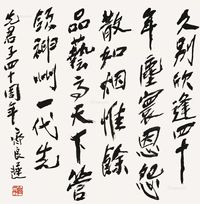 久别欣逢四十
年尘寰恩怨
散如烟惟馀
品艺高天下答
领神州一代先
先君子四十周年 齐良迟